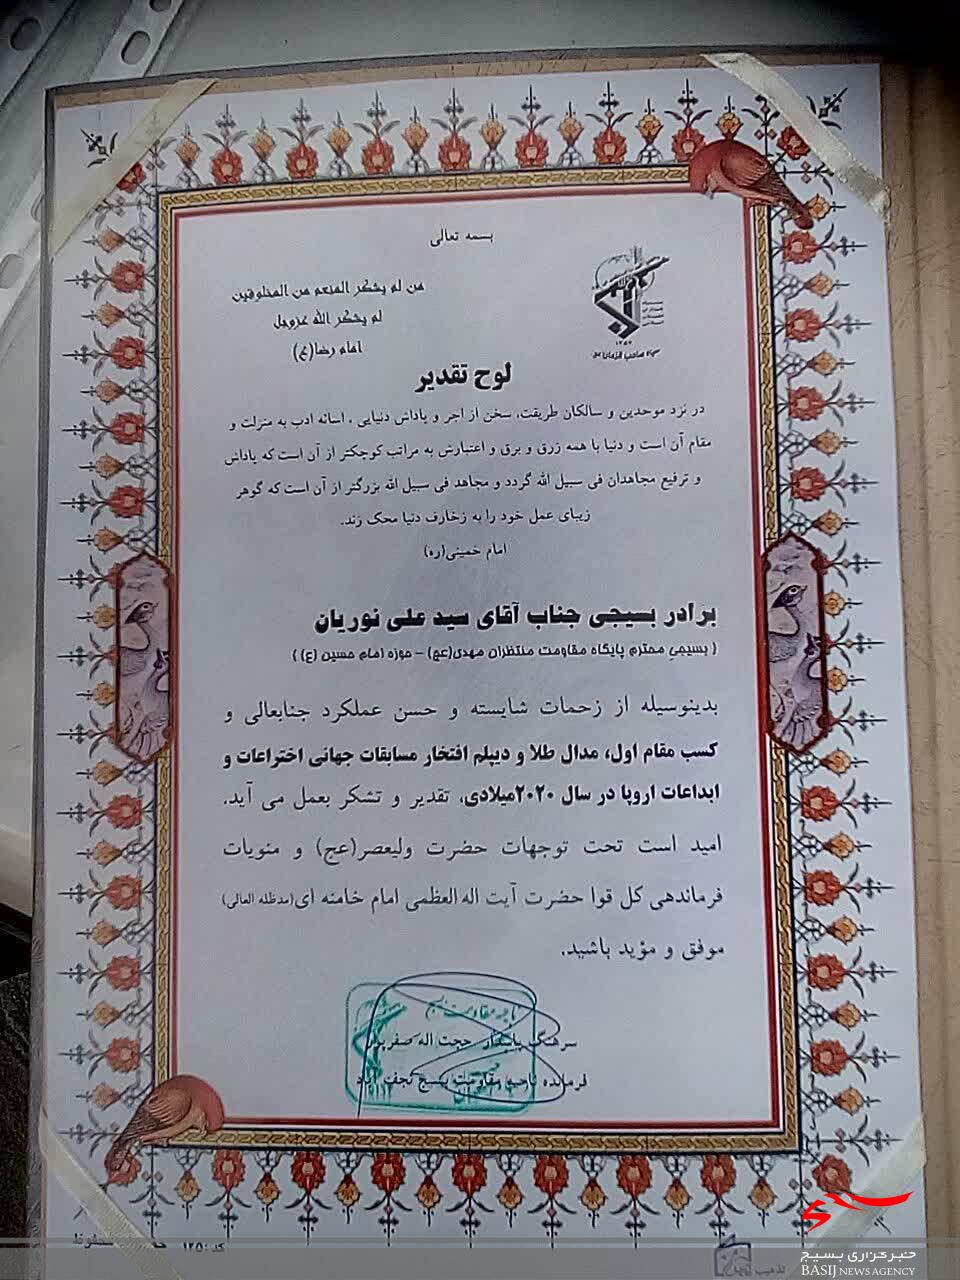 بسمه تعالی
من لم یشکر المنعم من المخلوقین
لم یشکر الله عزوجل
امام رضا(ع)
۱۳۵۷
سپاه صاحب الزمان(عج)
لوح تقدیر
در نزد موحدین و سالکان طریقت، سخن از اجر و پاداش دنیایی ، اسائه ادب به منزلت و
مقام آن است و دنیا با همه زرق و برق و اعتبارش به مراتب کوچکتر از آن است که پاداش
و ترفیع مجاهدان فی سبیل الله گردد و مجاهد فی سبیل الله بزرگتر از آن است که گوهر
زیبای عمل خود را به زخارف دنیا محک زند.
امام خمینی(ره)
برادر بسیجی جناب آقای سید علی نوریان
( بسیجی محترم پایگاه مقاومت منتظران مهدی(عج) – حوزه امام حسین (ع) )
بدینوسیله از زحمات شایسته و حسن عملکرد جنابعالی و
کسب مقام اول، مدال طلا و دیپلم افتخار مسابقات جهانی اختراعات و
ابداعات اروپا در سال ۲۰۲۰میلادی، تقدیر و تشکر بعمل می آید.
امید است تحت توجهات حضرت ولیعصر(عج) و منویات
فرماندهی کل قوا حضرت آیت اله العظمی امام خامنه ای(مدظله العالی)
موفق و مؤید باشید.
ناحیه مقاومت بسیج
سرهنگ پاسدار حجت اله صفرپور
فرمانده ناحیه مقاومت بسیج نجف آباد
کد: ۱۲۵۰
تذهیب
خبرگزاری بسیج
BASIJ NEWS AGENCY